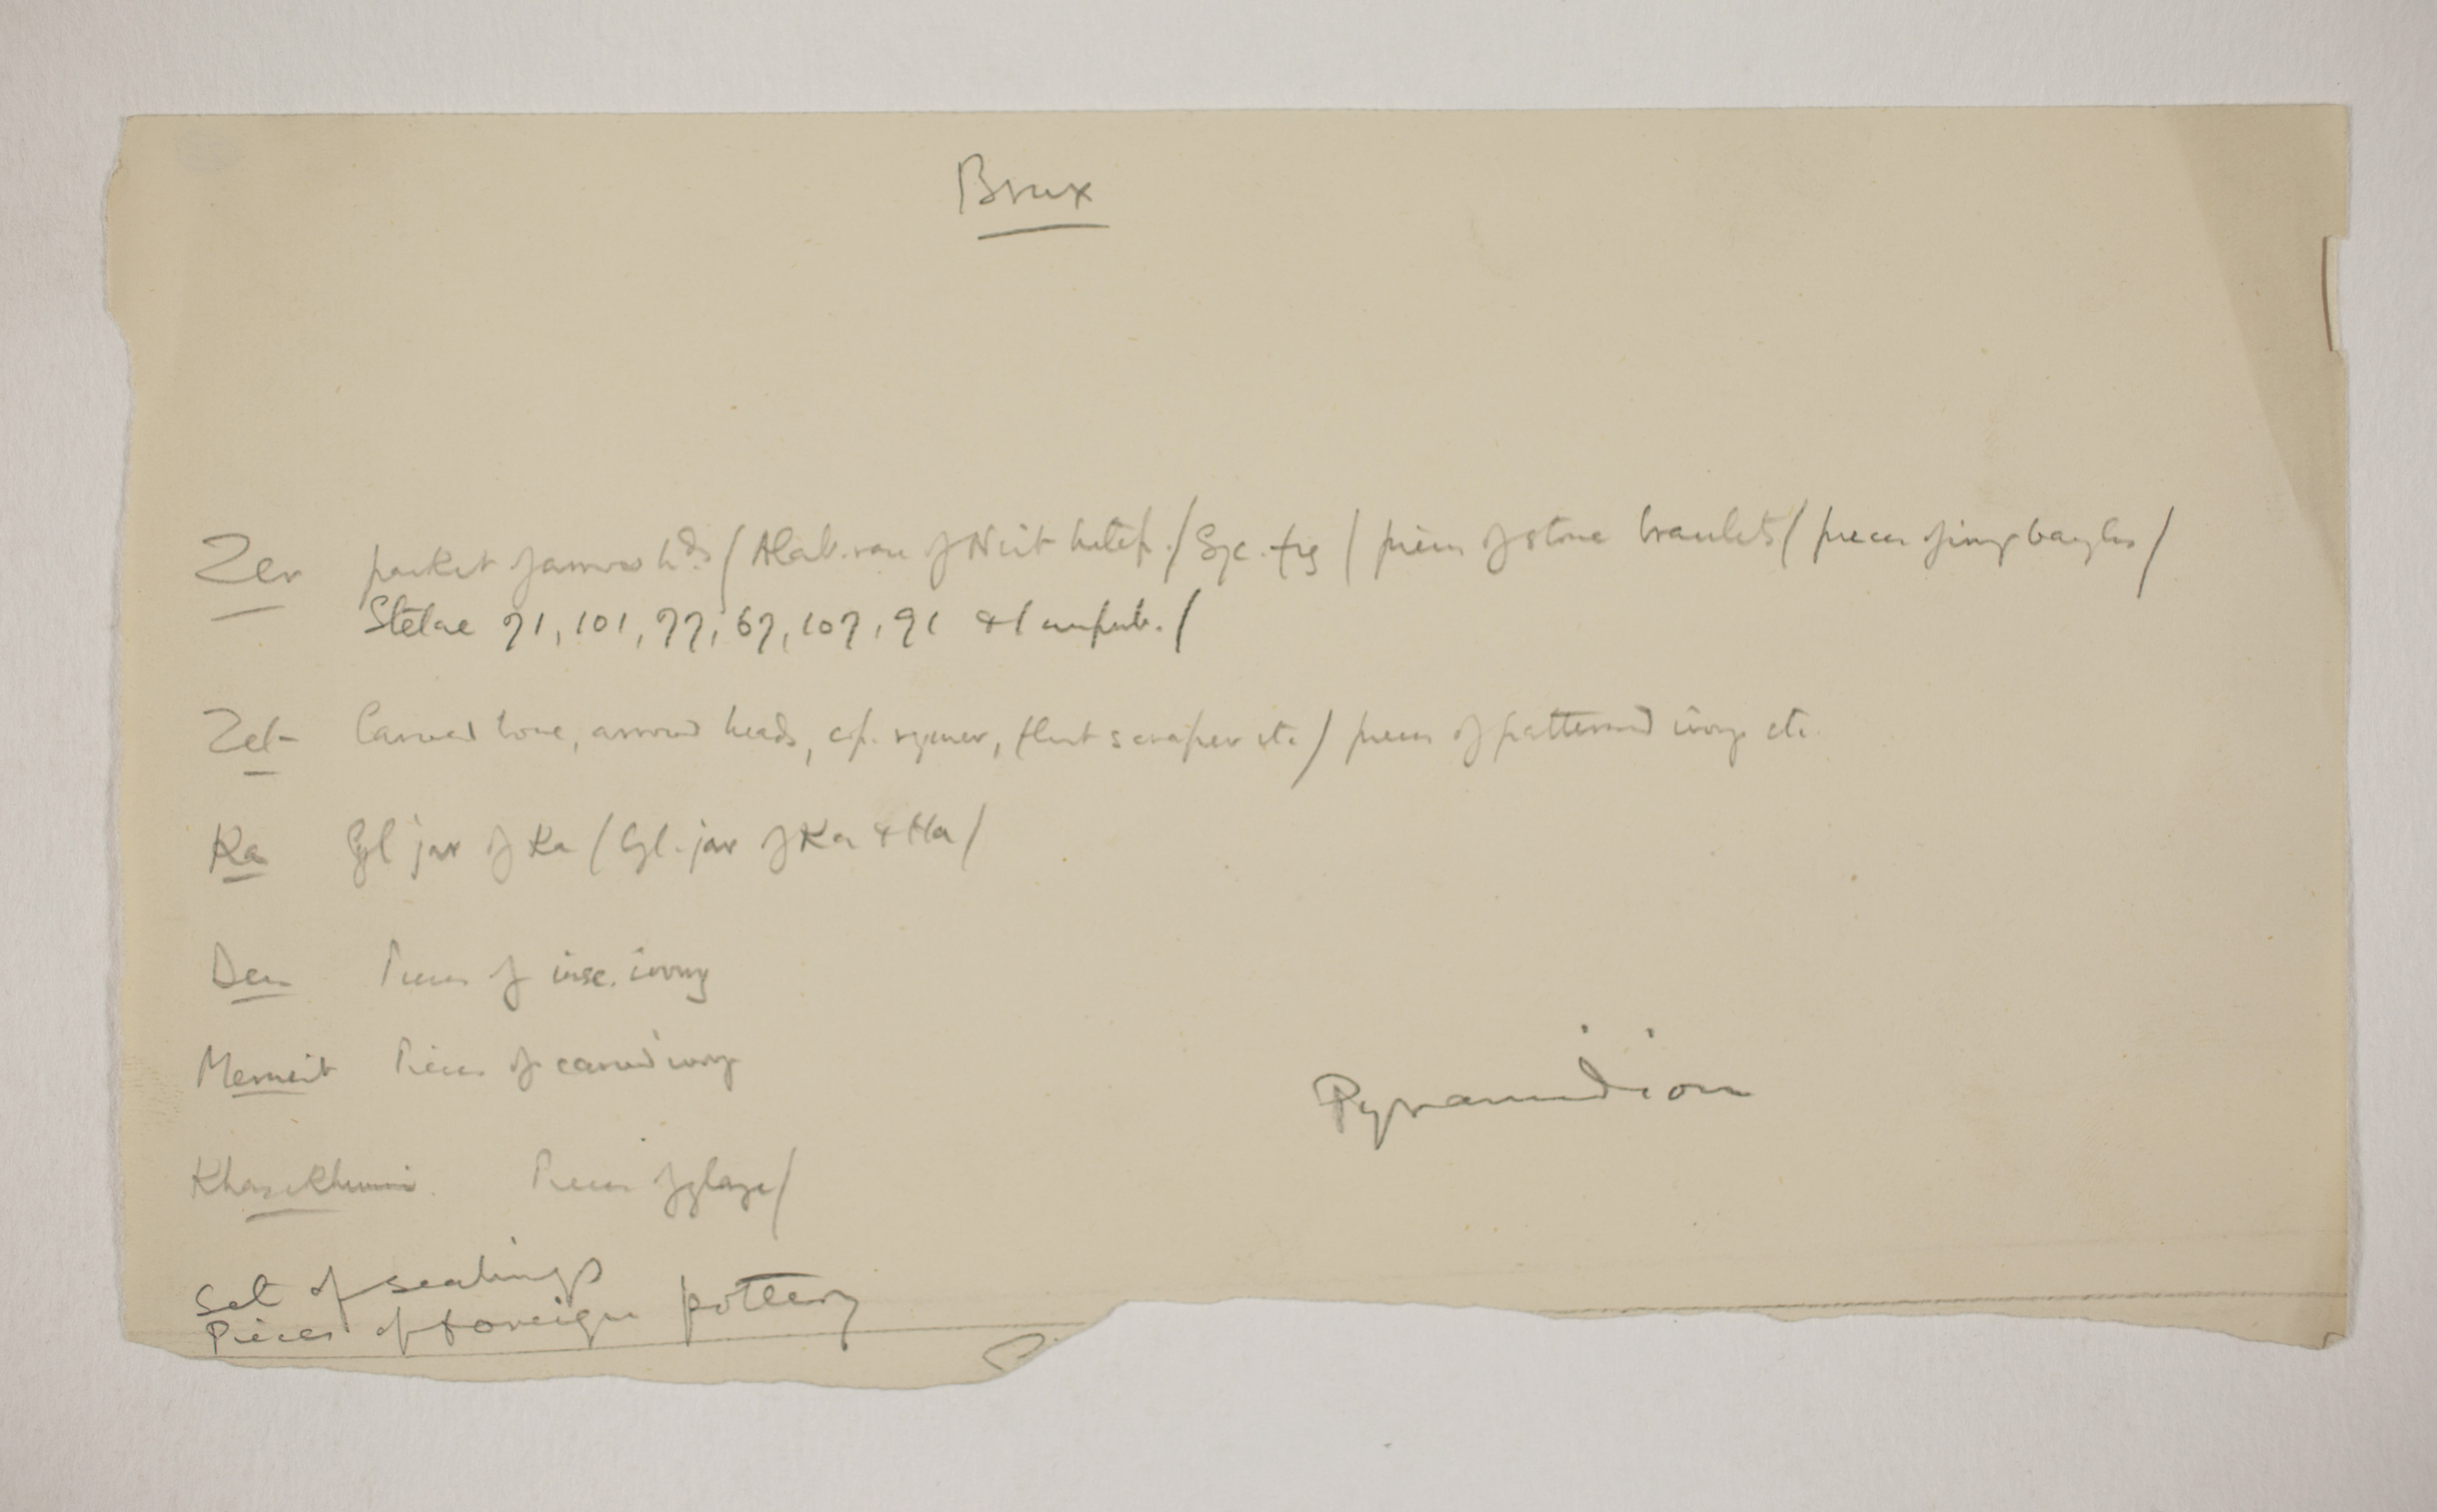 Brux
Zer packet of arrow hds / Alab. vase of Neit hetep. / Syc. fig / pieces of stone bracelets / pieces of ivory bangles /
Stelae 71, 101, 77, 67, 107, 91 & 1 unpub. /
Zet Carved bone, arrow heads, cop. rymer, flint scraper etc / pieces of patterned ivory etc.
Ka Cyl jar of Ka / Cyl. jar of Ka & Ha /
Den Pieces of insc. ivory
Merneit Pieces of carved ivory
Pyramidion
Khasekhemui. Pieces of glaze /
Set of sealings
Pieces of foreign pottery